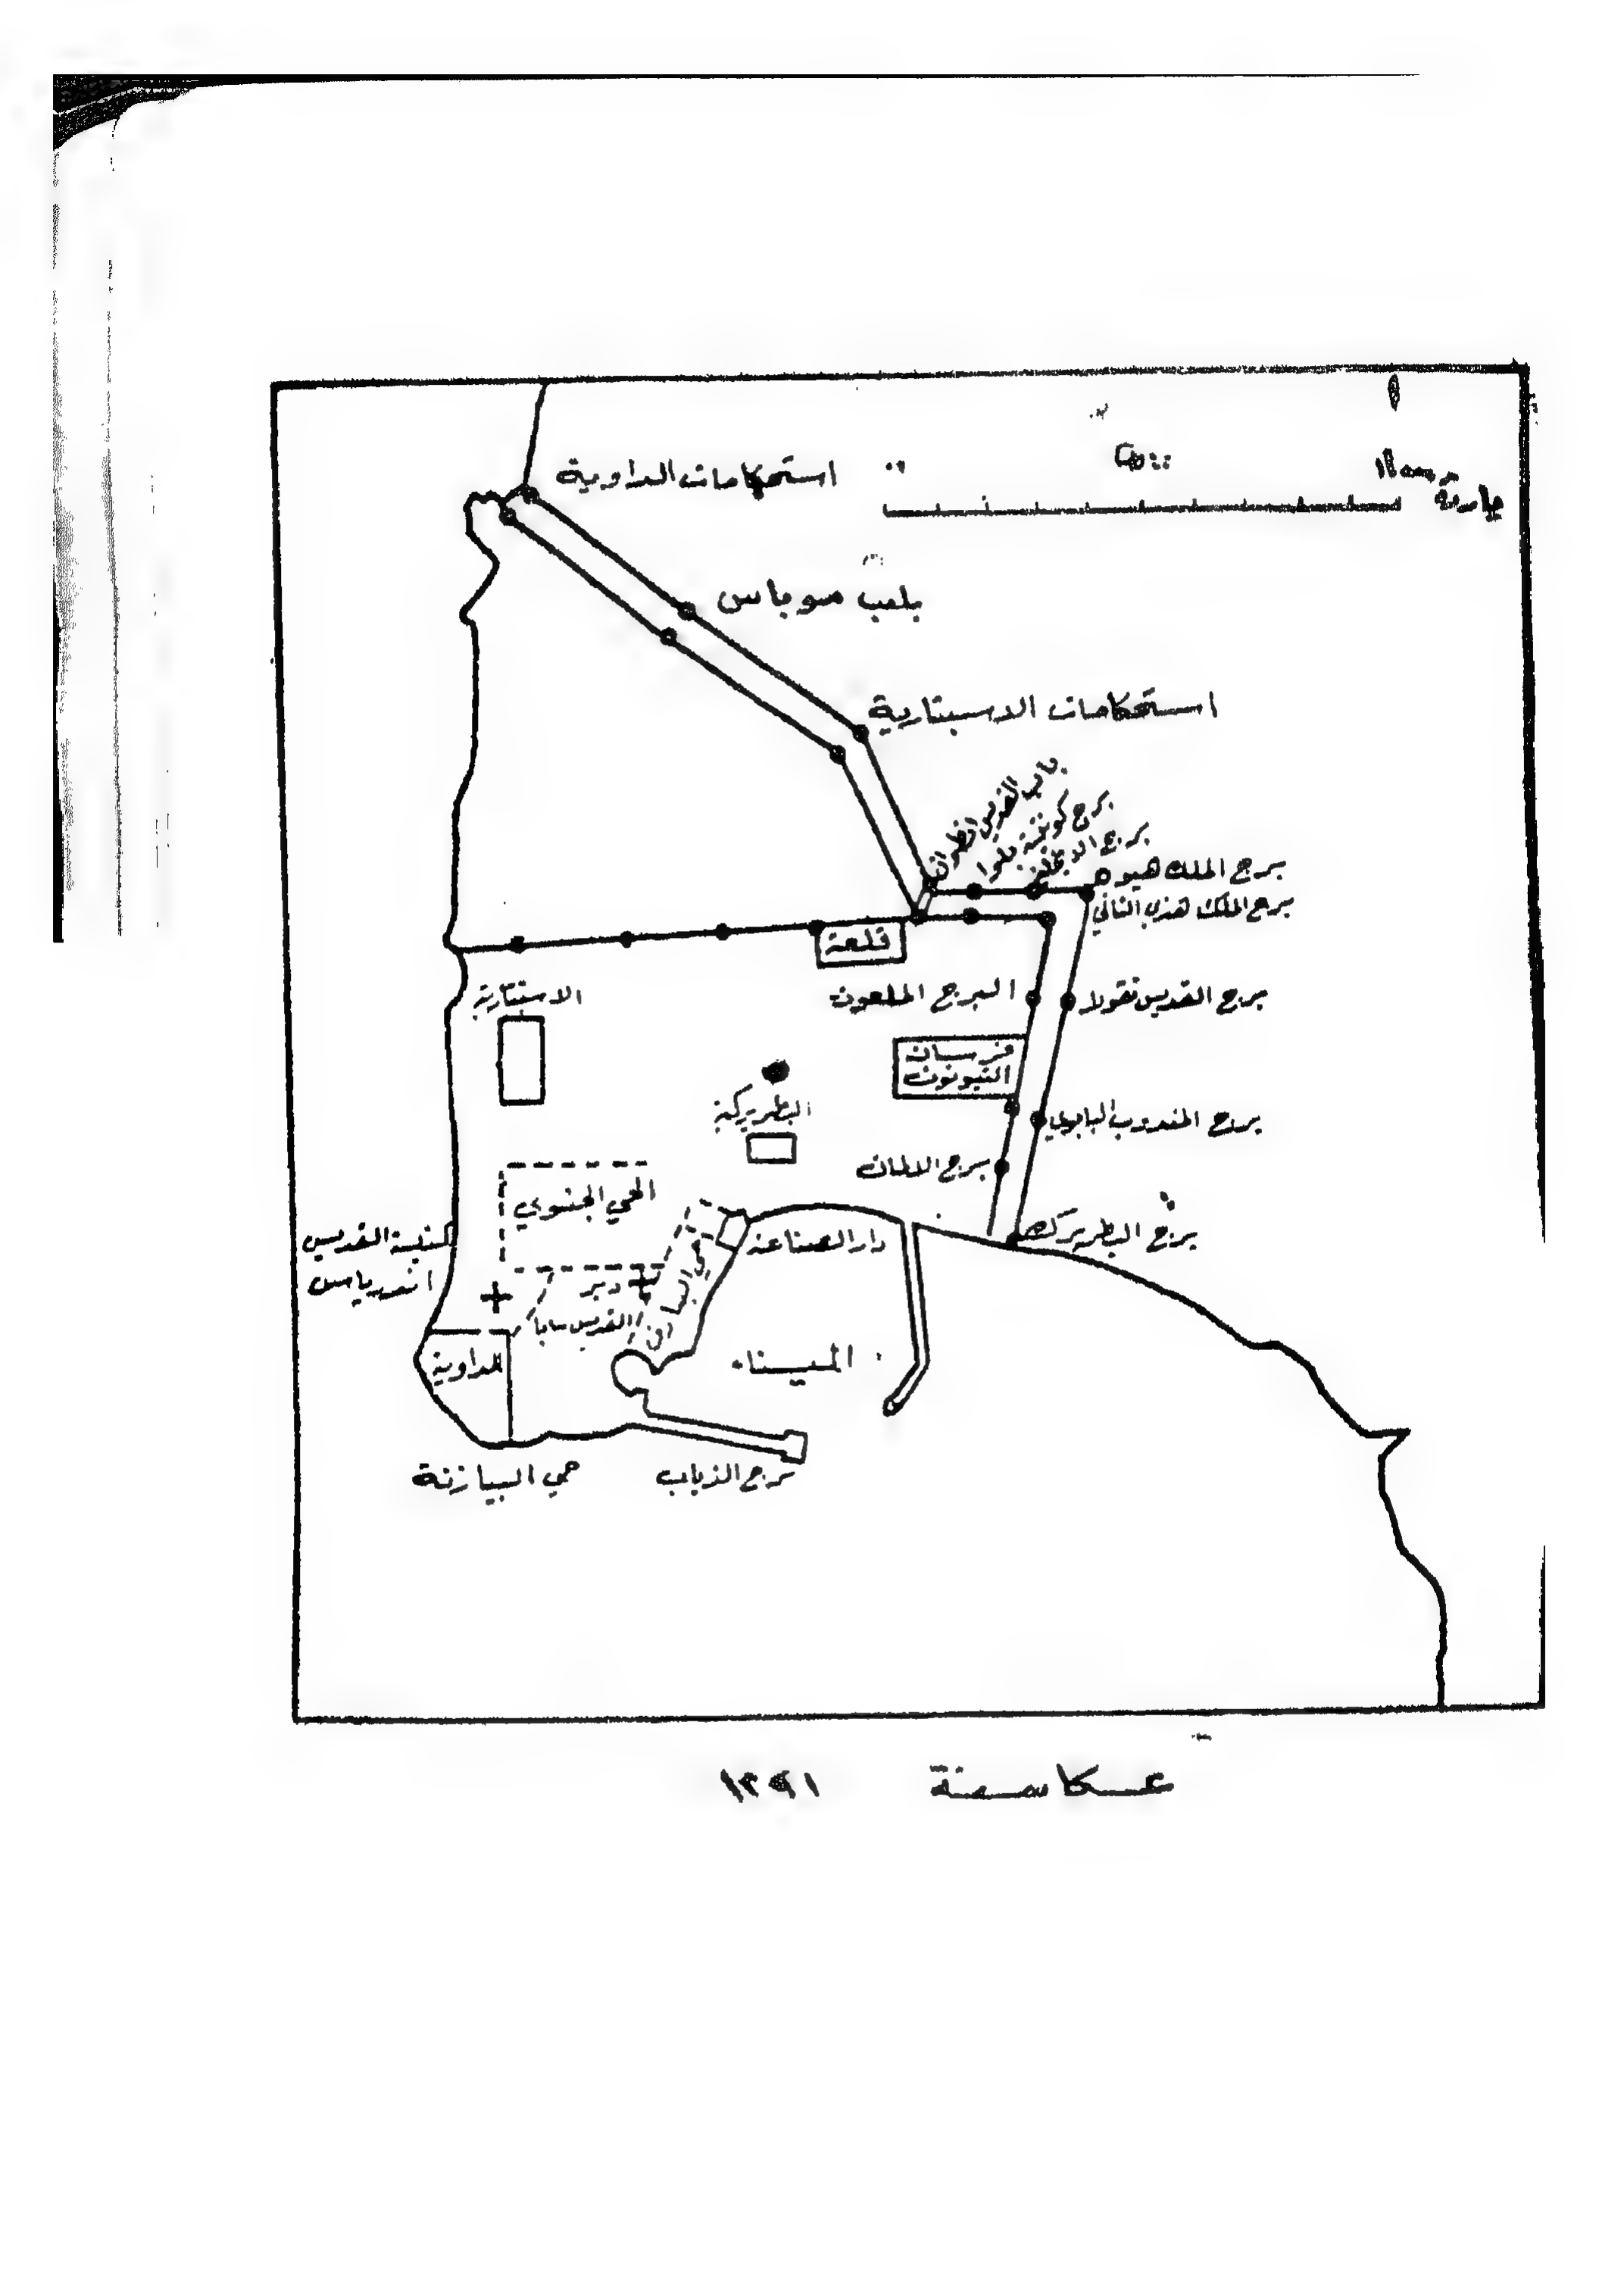 استحكامات الداوية
ياردة
استحكامات الاسبتارية
باب القديس انطوان
برج كونتيسة بلوا
برج الملك هيو
برج الملك هنري الثاني
قلعة
الاستتارية
البرج الملعون
برج القديس نقولا
فرسان
التيوتون
البطريركية
برج المندوب البابوي
برج الالمان
الحي الجنوي
كنيسة القديس
اندرياس
دار الصناعة
برج البطريرك
دير
القديس سابا
الداوية
الميناء
حي البيازنة
برج الذباب
عكا سنة ١٢٩١